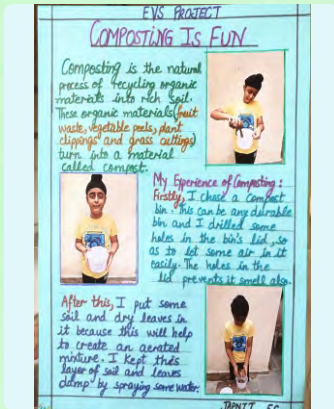 EVS PROJECT
COMPOSTING IS FUN
Composting is the natural
process of recycling organic
materials into rich soil.
These organic materials(fruit
waste, vegetable peels, plant
clippings and grass cuttings)
turn into a material
called compost.
My Experience of Composting:
Firstly, I chose a compost
bin. This can be any durable
bin and I drilled some
holes in the bin's lid, so
as to let some air in it
easily. The holes in the
lid prevents it smell also.
After this, I put some
soil and dry leaves in
it because this will help
to create an aerated
mixture. I kept this
layer of soil and leaves
damp by spraying some water.